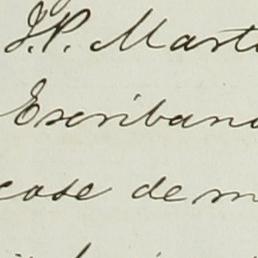 J.P. Marti
Escribano
case de m